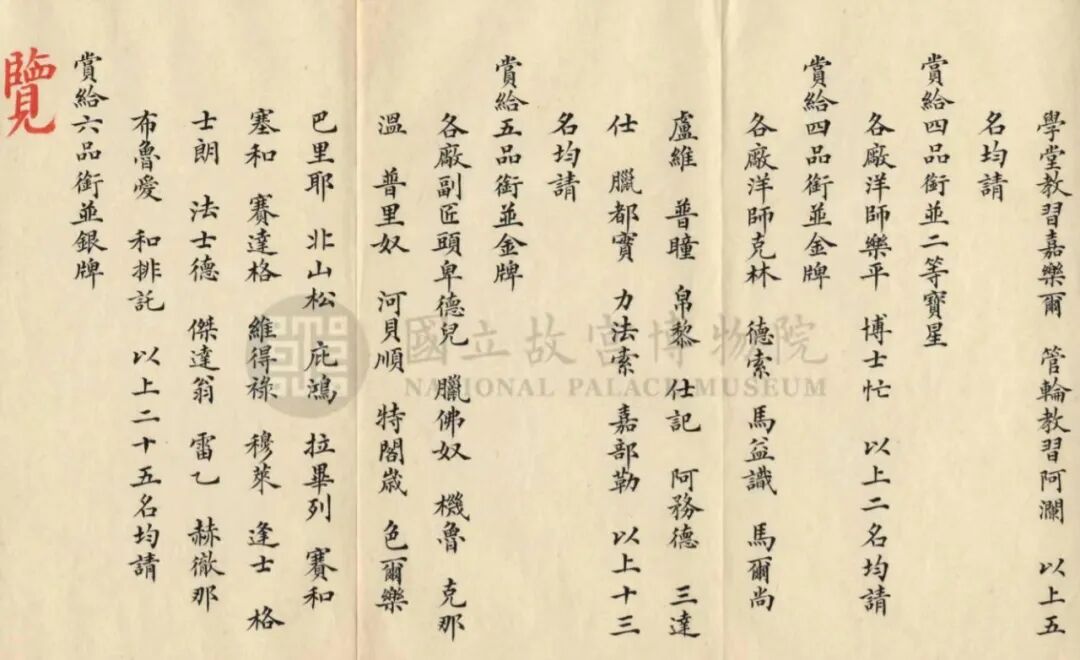 學堂教習嘉樂爾 管輪教習阿瀾 以上五
名均請
賞給四品銜並二等寶星
各廠洋師樂平 博士忙 以上二名均請
賞給四品銜並金牌
各廠洋師克林 德索 馬益識 馬爾尚
盧維 普瞳 帛黎 仕記 阿務德 三達
仕 臘都實 力法索 嘉部勒 以上十三
名均請
賞給五品銜並金牌
各廠副匠頭卑德兒 臘佛奴 機魯 克那
溫 普里奴 河貝順 特閣嵗 色爾樂
巴里耶 北山松 庇鴻 拉畢列 賽和
塞和 賽達格 維得祿 穆萊 逢士 格
士朗 法士德 傑達翁 雷乙 赫徹那
布魯愛 和排託 以上二十五名均請
賞給六品銜並銀牌
覽
國立故宮博物院
NATIONAL PALACE MUSEUM